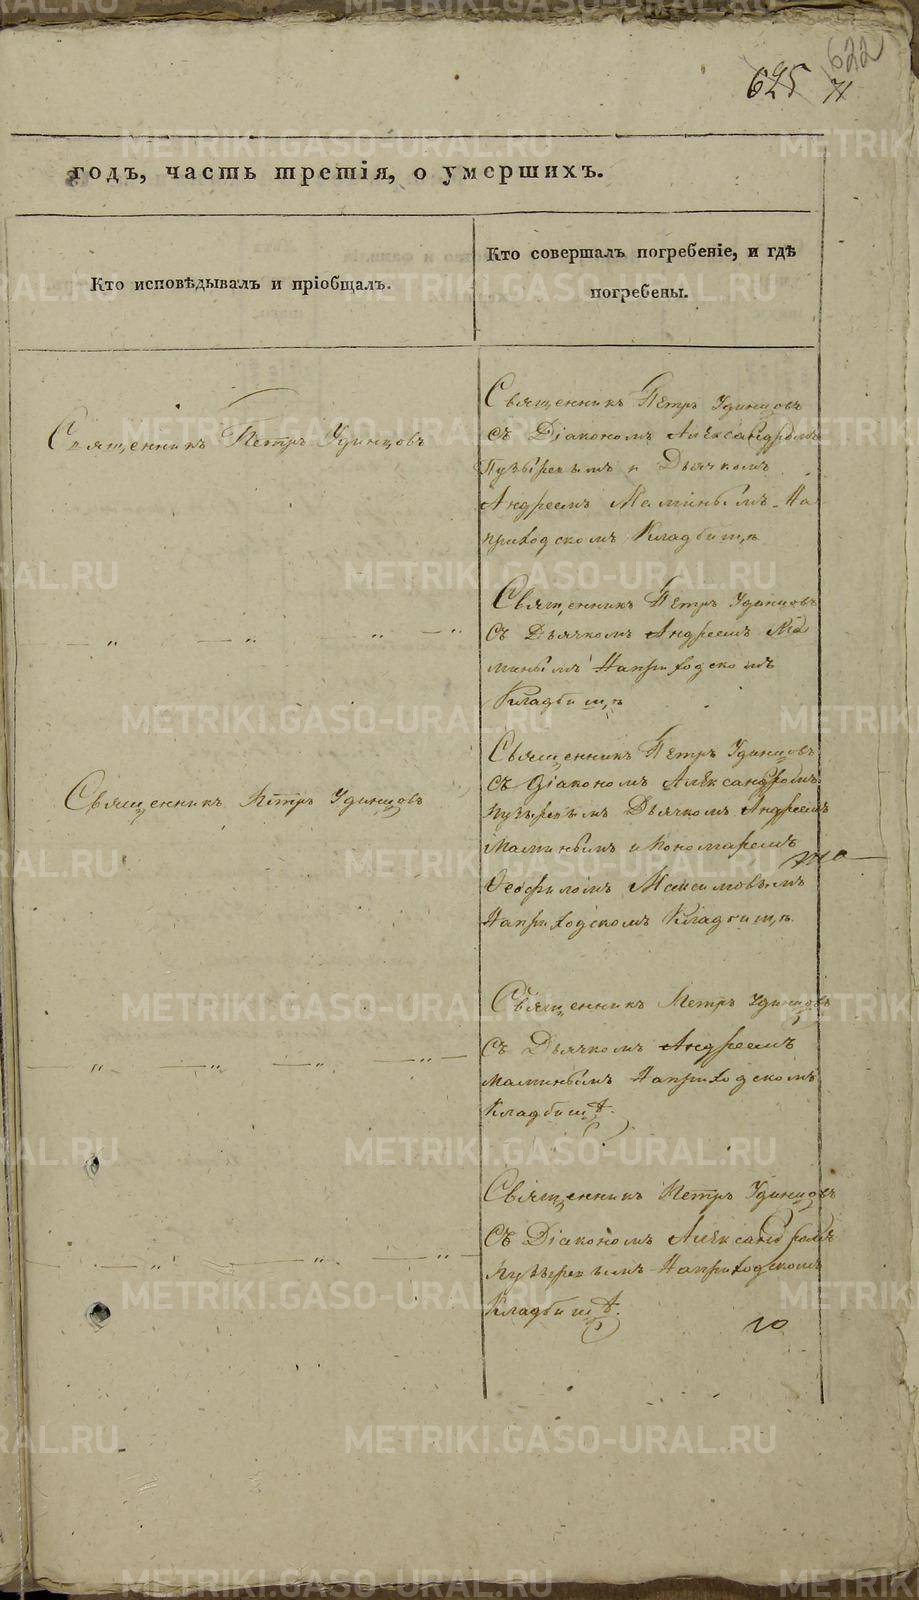 622
625 71
годъ, часть третія, о умершихъ.
Кто исповѣдывалъ и пріобщалъ.
Кто совершалъ погребеніе, и гдѣ
погребены.
Священникъ Петръ Удинцовъ
Священникъ Петръ Удинцовъ
съ Діакономъ Александромъ
Пузыревымъ и Дьячкомъ
Андреемъ Маминымъ. На
приходскомъ Кладбищѣ
— „ — „ „ — „
Священникъ Петръ Удинцовъ
съ Дьячкомъ Андреемъ Ма
минымъ На приходскомъ
Кладбищѣ
Священникъ Петръ Удинцовъ
Священникъ Петръ Удинцовъ
съ Діакономъ Александромъ
Пузыревымъ Дьячкомъ Андреемъ
Маминымъ и Пономаремъ
Феофиломъ
На приходскомъ Кладбищѣ
— „ — „ — „ — „ —
Священникъ Петръ Удинцовъ
съ Дьячкомъ Андреемъ
Маминымъ На приходскомъ
Кладбищѣ.
— „ — „ — „ —
Священникъ Петръ Удинцовъ
съ Діакономъ Александромъ
Пузыревымъ На приходскомъ
Кладбищѣ.
METRIKI.GASO-URAL.RU